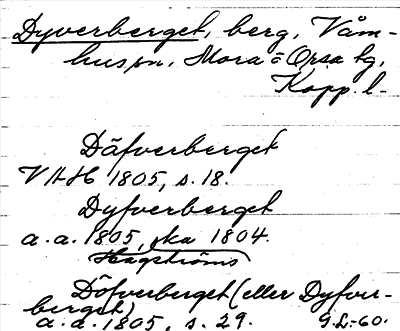 Dyverberget, berg, Våm-
hus sn, Mora o Orsa tg,
Kopp. l.
Däfverberget
VAH 1805, s. 18.
Dyfverberget
a. a. 1805, ska 1804.
Hagströms
Döfverberget (eller Dyfver-
berget)
a. a. 1805, s. 29. G.L.-60.